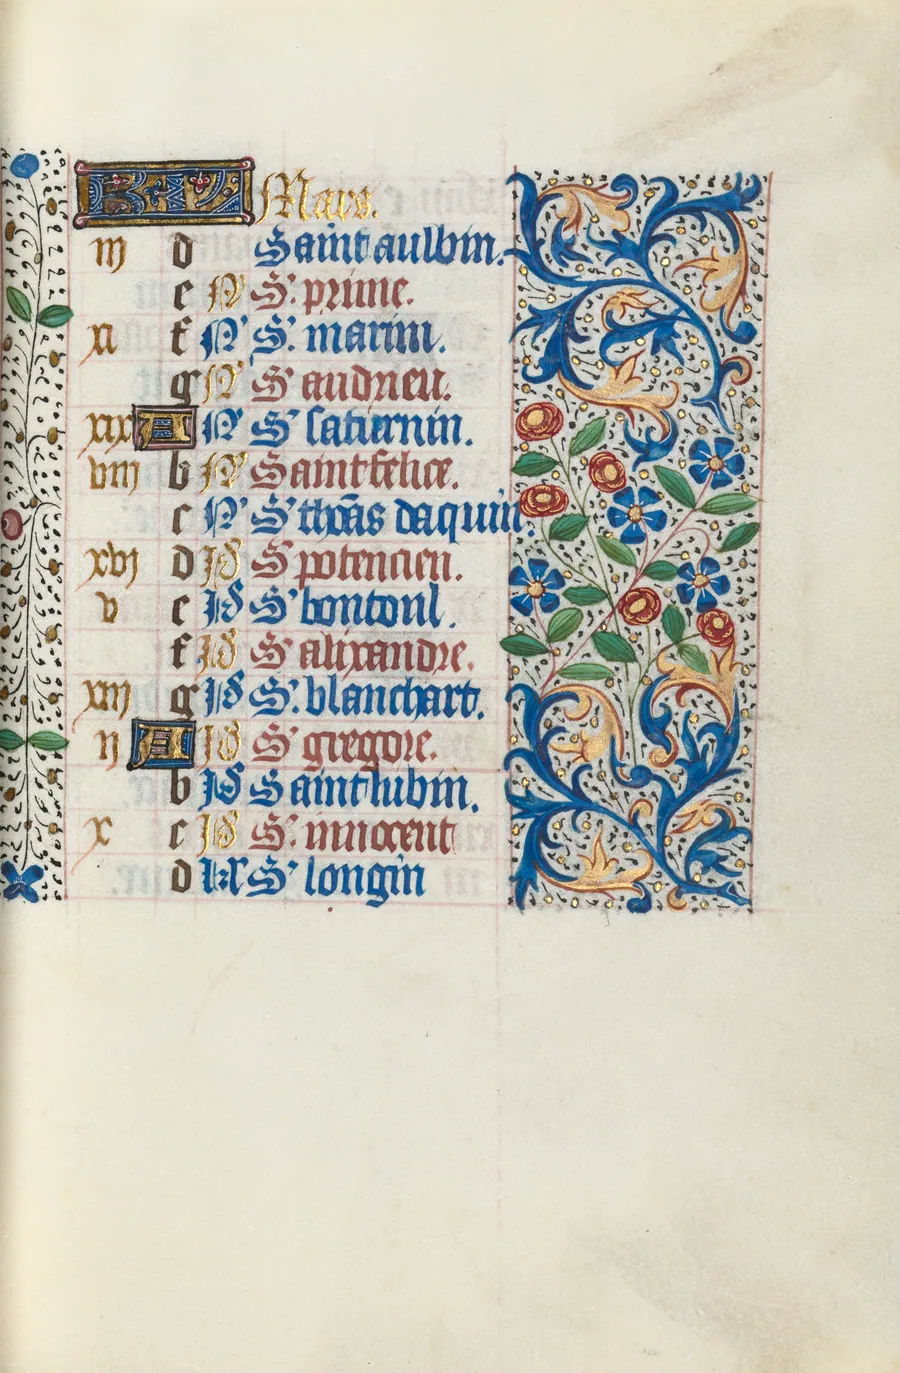 KL Mars.
iij d Saint aulbin.
e N S' prime.
xi f N S. marin.
g N S' audrieu.
xix A N S' saturnin.
viij b N Saint felice.
c N S' thōas daquin
xvj d Id S' potencien.
v e Id S' bontoul.
f Id S' alixandre.
xiij g Id S'. blanchart.
ij A Id S' gregore.
b Id Saint lubin.
x c Id S'. innocent
d kl S' longin